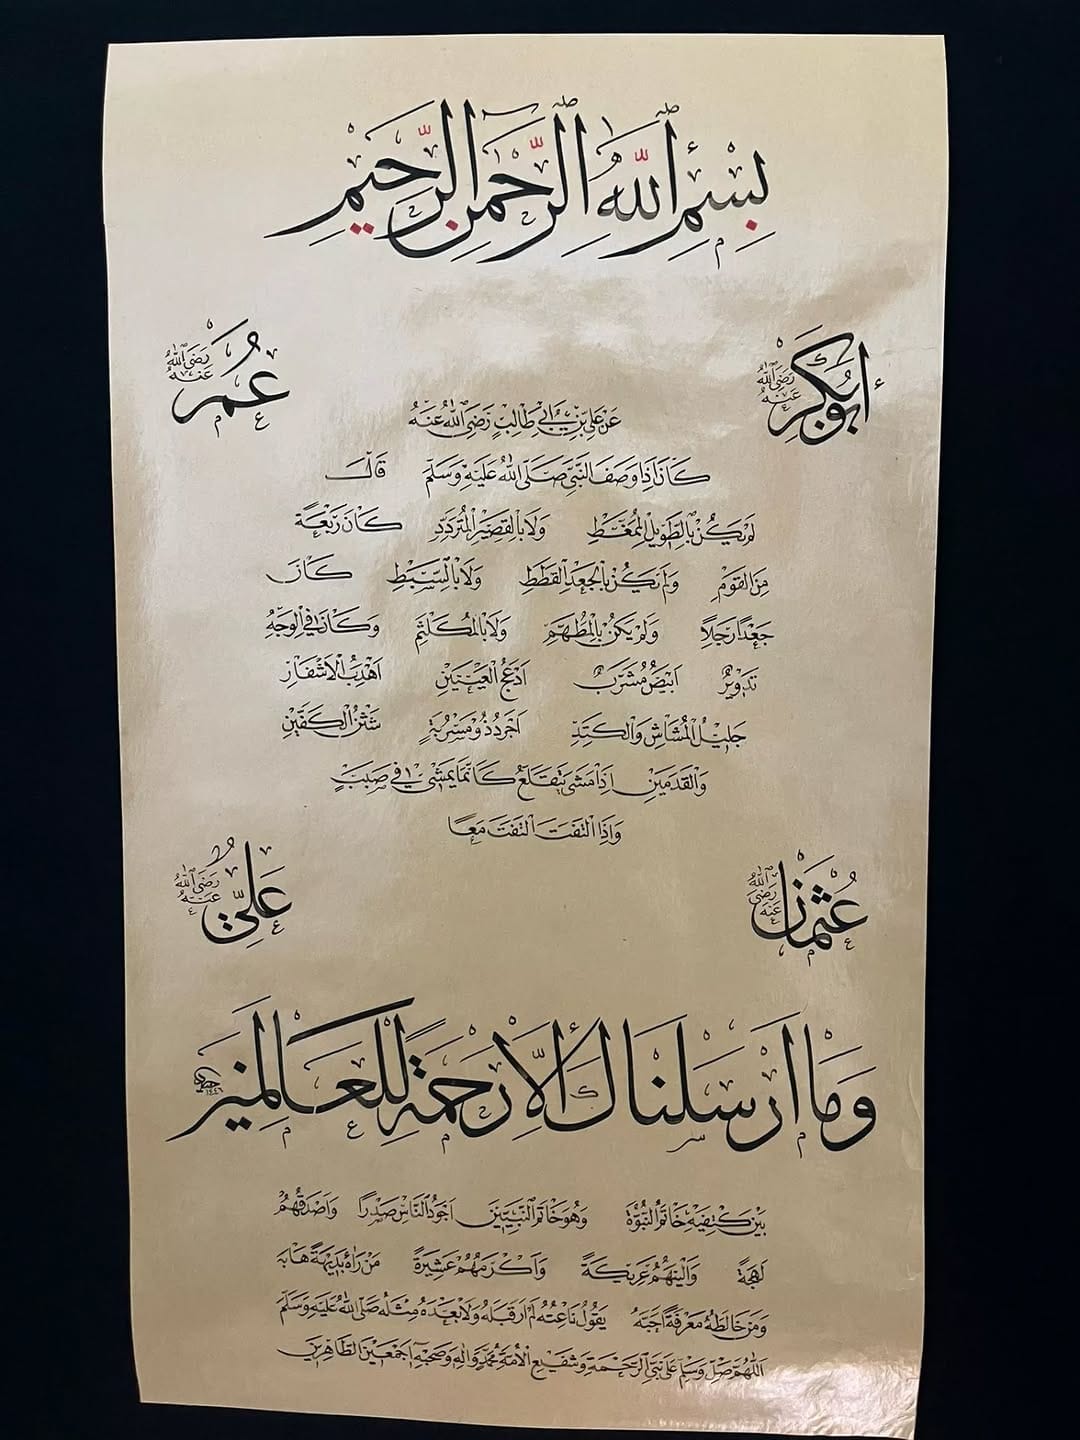 بِسْمِ ٱللَّهِ ٱلرَّحْمَٰنِ ٱلرَّحِيمِ
أَبُو بَكْرٍ رَضِيَ ٱللَّهُ عَنْهُ
عُمَرُ رَضِيَ ٱللَّهُ عَنْهُ
عَنْ عَلِيِّ بْنِ أَبِي طَالِبٍ رَضِيَ اللهُ عَنْهُ
كَانَ إِذَا وَصَفَ النَّبِيَّ صَلَّى اللهُ عَلَيْهِ وَسَلَّمَ قَالَ
لَمْ يَكُنْ بِالطَّوِيلِ الْمُمَغَّطِ وَلَا بِالْقَصِيرِ الْمُتَرَدِّدِ كَانَ رَبْعَةً
مِنَ الْقَوْمِ وَلَمْ يَكُنْ بِالْجَعْدِ الْقَطَطِ وَلَا بِالسَّبْطِ كَانَ
جَعْدًا رَجِلًا وَلَمْ يَكُنْ بِالْمُطَهَّمِ وَلَا بِالْمُكَلْثَمِ وَكَانَ فِي الْوَجْهِ
تَدْوِيرٌ اَبْيَضُ مُشْرَبٌ اَدْعَجُ الْعَيْنَيْنِ اَهْدَبُ الْاَشْفَارِ
جَلِيلُ الْمُشَاشِ وَالْكَتِدِ اَجْرَدُ ذُو مَسْرُبَةٍ شَثْنُ الْكَفَّيْنِ
وَالْقَدَمَيْنِ اِذَا مَشَى يَتَقَلَّعُ كَاَنَّمَا يَمْشِي فِي صَبَبٍ
وَاِذَا الْتَفَتَ الْتَفَتَ مَعًا
عُثْمَانُ رَضِيَ ٱللَّهُ عَنْهُ
عَلِيٌّ رَضِيَ ٱللَّهُ عَنْهُ
وَمَا اَرْسَلْنَاكَ اِلَّا رَحْمَةً لِلْعَالَمِينَ
١٤٤٦
بَيْنَ كَتِفَيْهِ خَاتَمُ النُّبُوَّةِ وَهُوَ خَاتَمُ النَّبِيِّينَ اَجْوَدُ النَّاسِ صَدْرًا وَاَصْدَقُهُمْ
لَهْجَةً وَاَلْيَنُهُمْ عَرِيكَةً وَاَكْرَمُهُمْ عَشِيرَةً مَنْ رَاٰهُ بَدِيهَةً هَابَهُ
وَمَنْ خَالَطَهُ مَعْرِفَةً اَحَبَّهُ يَقُولُ نَاعِتُهُ لَمْ اَرَ قَبْلَهُ وَلَا بَعْدَهُ مِثْلَهُ صَلَّى اللهُ عَلَيْهِ وَسَلَّمَ
اَللّٰهُمَّ صَلِّ وَسَلِّمْ عَلَى نَبِيِّ الرَّحْمَةِ وَشَفِيعِ الْاُمَّةِ مُحَمَّدٍ وَاٰلِهِ وَصَحْبِهِ اَجْمَعِينَ الطَّاهِرِينَ